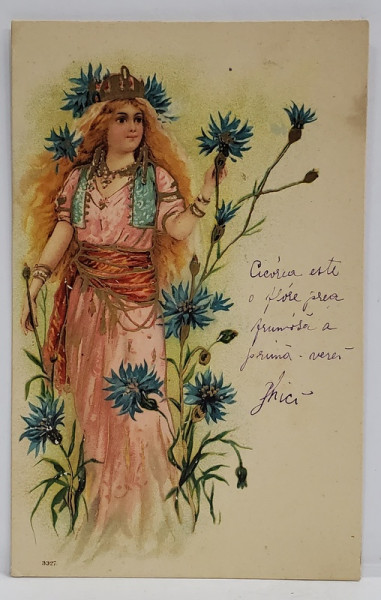 Cicórea este
o flóre prea
frumósă a
primă-verei
3327